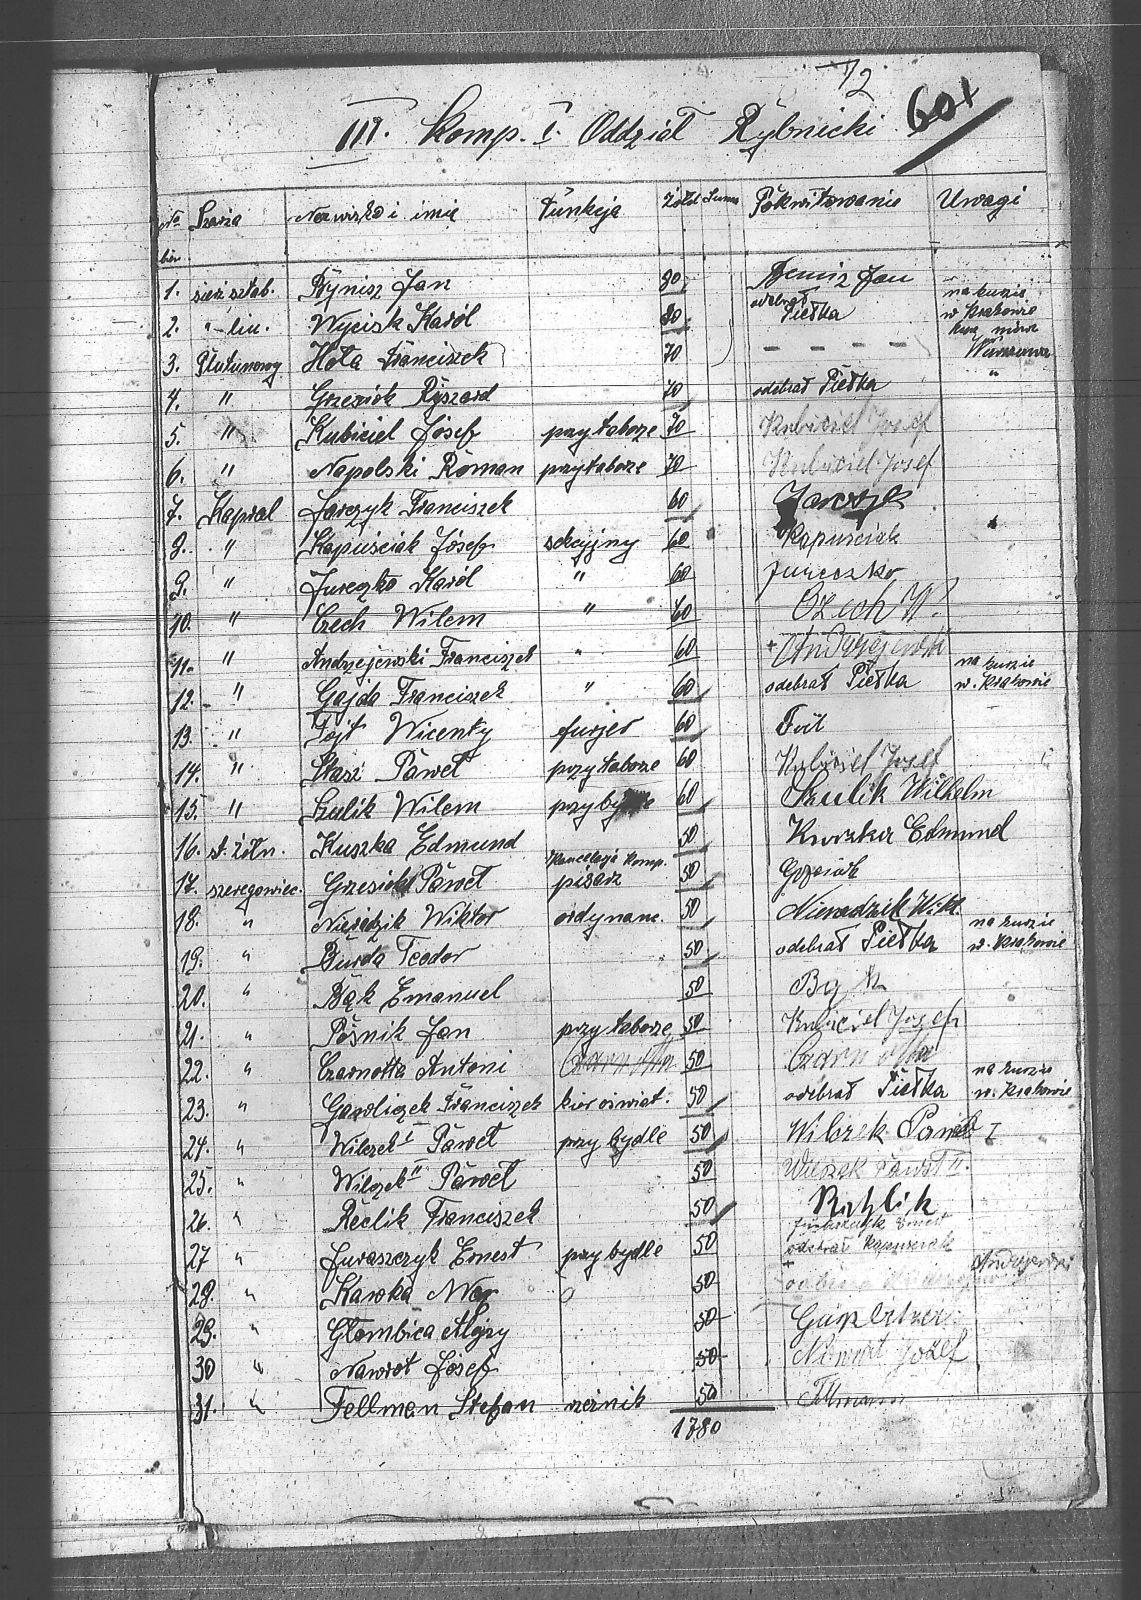 72
III. Komp. I. Oddział Rybnicki 60+
No bież Szarża Nazwisko i imię Funkcja Żołd Suma Pokwitowanie Uwagi
1. sierż. sztab. Rynisz Jan 80 Jan na kursie
2. " lin. Wycisk Karól 80 odebrał Pietka w Krakowie
3. Plutunowy Hota Franciszek 70 - - - - - Warszawa
4. " Grzesiok Ryszard 70 odebrał Pietka "
5. " Kubiciel Józef przy taborze 70 Kubiciel Josef
6. " Napolski Roman przy taborze 70 Kubiciel Josef
7. Kapral Jarczyk Franciszek 60
8. " Kapuściak Józef sekcyjny 60 Kapuściak
9. " Jureczko Karól " 60 Jureczko
10. " Czech Wilem " 60 Czech W.
11. " Andrzejewski Franciszek " 60 + Andrzejewski
12. " Gajda Franciszek " 60 odebrał Pietka na kursie w. Krakowie
13. " Fojt Wicenty furjer 60 Foit
14. " Stasz Paweł przy taborze 60 Kubiciel Josef
15. " Szulik Wilem przy 60 Szulik Wilhelm
16. st. żółn. Kuszka Edmund 50 Kuszka Edmund
17. szeregowiec. Grzesiok Paweł kancelaja komp. pisarz 50 Grzesiok
18. " Nieradzik Wiktor ordynanc. 50 Nieradzik Wikt.
19. " Burda Teodor 50 odebrał Pietka na kursie w. Krakowie
20. " Bąk Emanuel 50 Bąk
21. " Pośnik Jan przy taborze 50 Kubiciel Jozef
22. " Czarnotta Antoni Czarnotta 50 Czarnotta
23. " Gawliczek Franciszek kier oświat. 50 odebrał Pietka na kursie w. Krakowie
24. " Wilczek I Paweł przy bydle 50 Wilczek Paweł I
25. " Wilczek II Paweł 50 Wilczek Paweł II.
26. " Reclik Franciszek 50
27 " Juraszczyk Ernest przy bydle 50 odebrał Kapuściak
28. " Kawka 50 Andrzejewski
29. " Głombica Alojzy 50
30 " Nawrot Józef 50 Nawrot Józef
31. " Fellman Stefan rzeźnik 50
1780